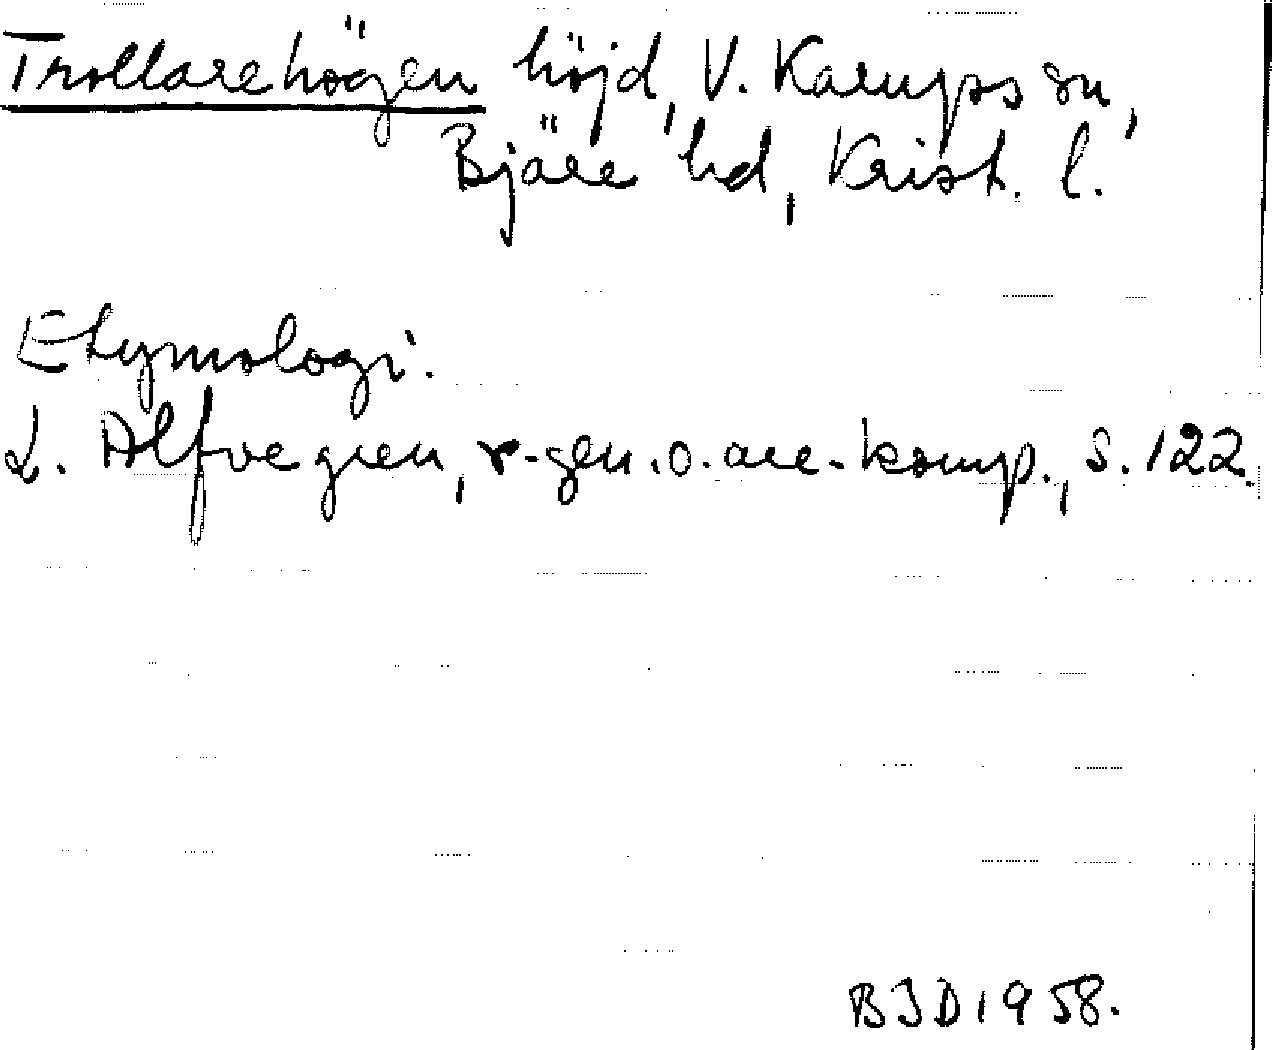 Trollarehögen höjd, V. Karups sn,
Bjäre hd, Krist. l.
Etymologi.
L. Alfvegren, r-gen. o. are-komp., s. 122.
BJD 1958.